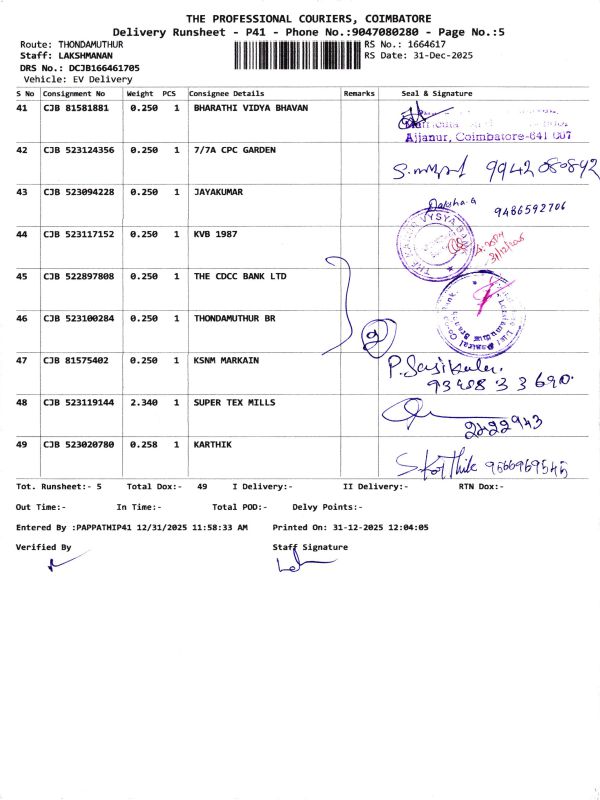 THE PROFESSIONAL COURIERS, COIMBATORE
Delivery Runsheet - P41 - Phone No.:9047080280 - Page No.:5
Route: THONDAMUTHUR
RS No.: 1664617
Staff: LAKSHMANAN
RS Date: 31-Dec-2025
DRS No.: DCJB166461705
Vehicle: EV Delivery
S No Consignment No Weight PCS Consignee Details Remarks Seal & Signature
41 CJB 81581881 0.250 1 BHARATHI VIDYA BHAVAN
Ajjanur, Coimbatore-641 007
42 CJB 523124356 0.250 1 7/7A CPC GARDEN
9942080842
43 CJB 523094228 0.250 1 JAYAKUMAR
Daksha G 9486592706
44 CJB 523117152 0.250 1 KVB 1987
VYSYA BANK
31/12/2025
45 CJB 522897808 0.250 1 THE CDCC BANK LTD
46 CJB 523100284 0.250 1 THONDAMUTHUR BR
9
47 CJB 81575402 0.250 1 KSNM MARKAIN
P. Sasikala.
48 CJB 523119144 2.340 1 SUPER TEX MILLS
2422943
49 CJB 523020780 0.258 1 KARTHIK
S Karthik 9566969545
Tot. Runsheet:- 5 Total Dox:- 49 I Delivery:- II Delivery:- RTN Dox:-
Out Time:- In Time:- Total POD:- Delvy Points:-
Entered By :PAPPATHIP41 12/31/2025 11:58:33 AM Printed On: 31-12-2025 12:04:05
Verified By Staff Signature